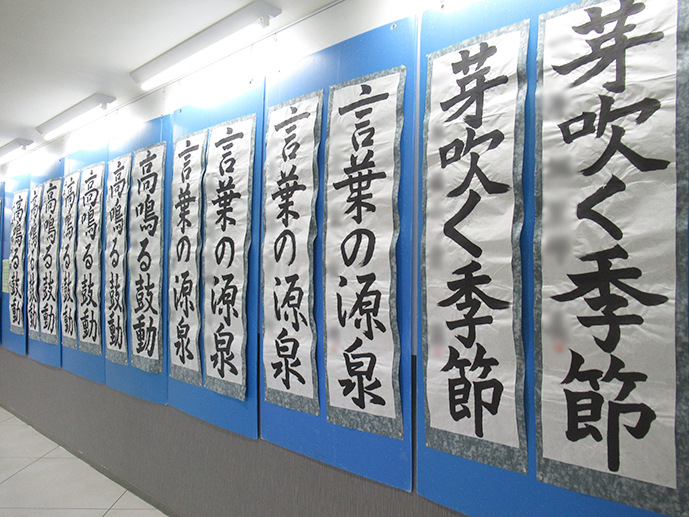 芽吹く季節
芽吹く季節
言葉の源泉
言葉の源泉
言葉の源泉
言葉の源泉
高鳴る鼓動
高鳴る鼓動
高鳴る鼓動
高鳴る鼓動
高鳴る鼓動
高鳴る鼓動
高鳴る鼓動